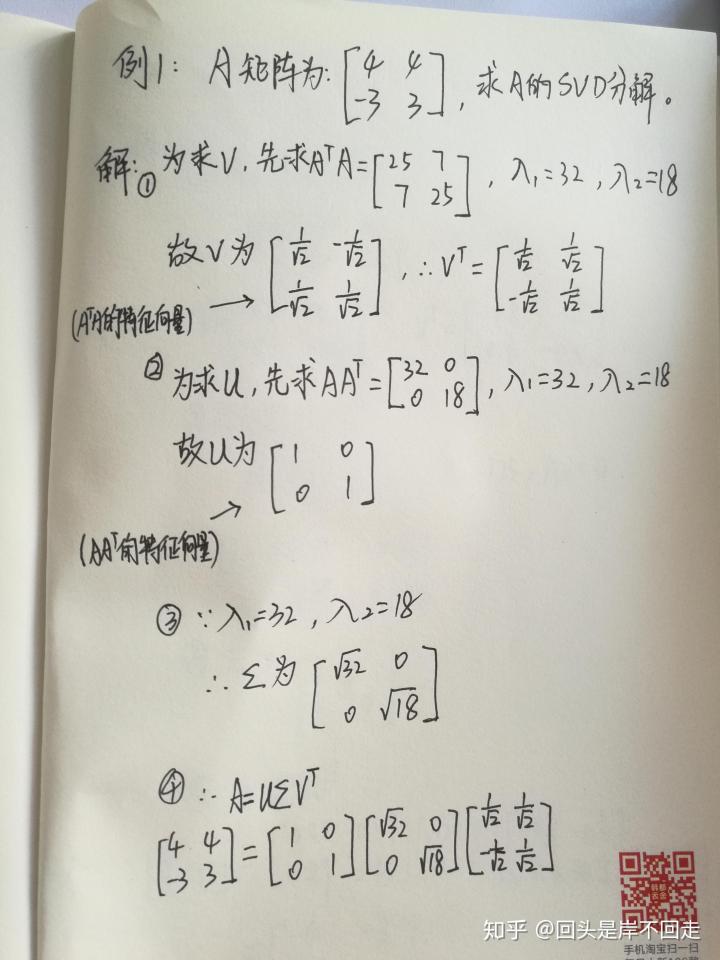 例1: A矩阵为: [4 4; -3 3], 求A的SVD分解。
解: ① 为求V, 先求AᵀA = [25 7; 7 25], λ₁=32, λ₂=18
故V为 [1/√2 -1/√2; 1/√2 1/√2], ∴Vᵀ = [1/√2 1/√2; -1/√2 1/√2]
(AᵀA的特征向量) →
② 为求U, 先求AAᵀ = [32 0; 0 18], λ₁=32, λ₂=18
故U为 [1 0; 0 1]
(AAᵀ的特征向量) →
③ ∵λ₁=32, λ₂=18
∴Σ为 [√32 0; 0 √18]
④ ∴ A=UΣVᵀ
[4 4; -3 3] = [1 0; 0 1] [√32 0; 0 √18] [1/√2 1/√2; -1/√2 1/√2]
知乎 @回头是岸不回走
手机淘宝扫一扫